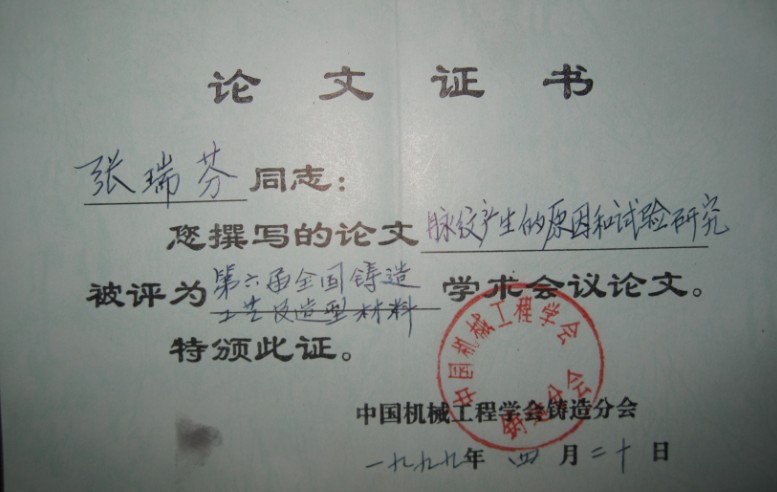 论文证书
张瑞芬同志：
您撰写的论文脉纹产生的原因和试验研究
被评为第六届全国铸造
工艺及造型材料学术会议论文。
特颁此证。
中国机械工程学会
铸造分会
中国机械工程学会铸造分会
一九九九年四月二十日